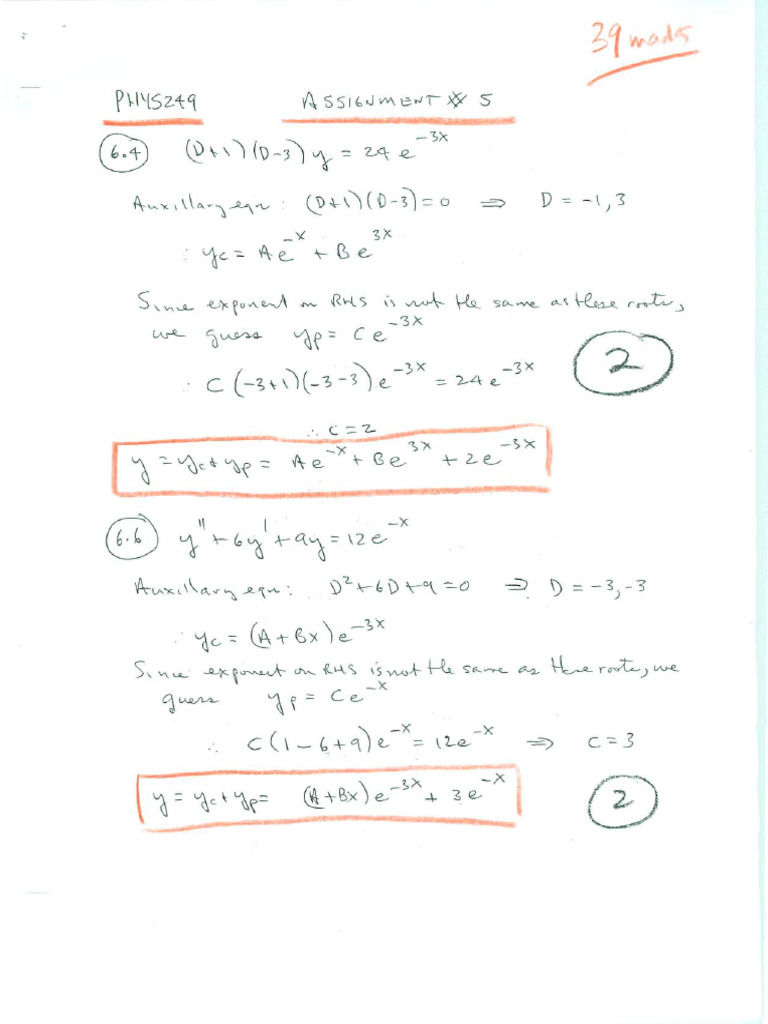 39 marks
PHYS249 ASSIGNMENT # 5
6.4 (D+1)(D-3)y = 24e^{-3x}
Auxillary eqn: (D+1)(D-3)=0 ⇒ D = -1, 3
∴ y_c = Ae^{-x} + Be^{3x}
Since exponent on RHS is not the same as these roots,
we guess y_p = Ce^{-3x}
∴ C(-3+1)(-3-3)e^{-3x} = 24e^{-3x}
2
∴ C = 2
y = y_c + y_p = Ae^{-x} + Be^{3x} + 2e^{-3x}
6.6 y'' + 6y' + 9y = 12e^{-x}
Auxillary eqn: D² + 6D + 9 = 0 ⇒ D = -3, -3
∴ y_c = (A + Bx)e^{-3x}
Since exponent on RHS is not the same as these roots, we
guess y_p = Ce^{-x}
∴ C(1-6+9)e^{-x} = 12e^{-x} ⇒ C = 3
y = y_c + y_p = (A+Bx)e^{-3x} + 3e^{-x}
2